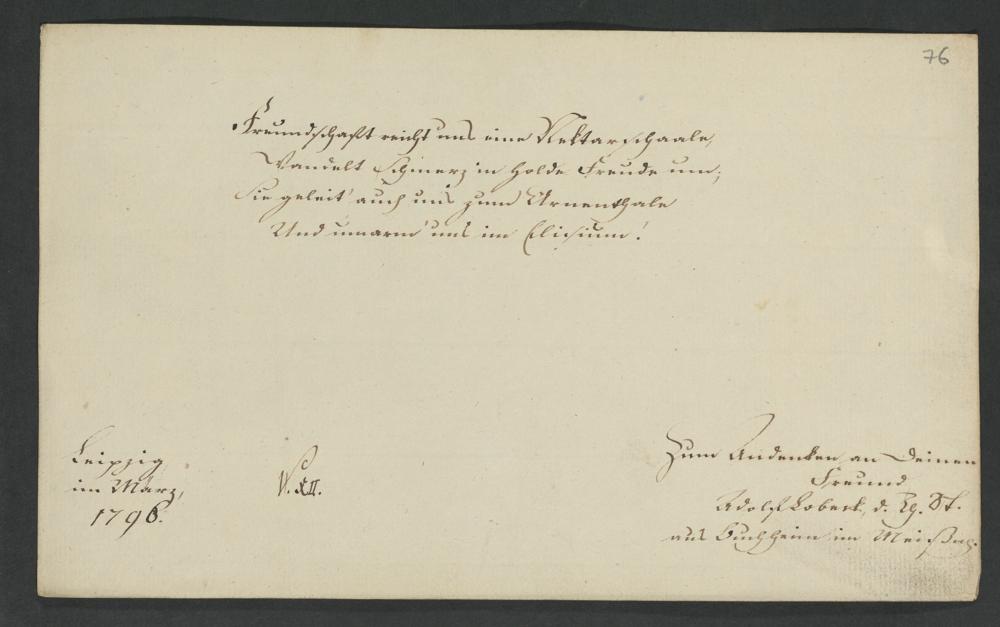 76
Freundschaft reicht uns eine Nektarschaale,
Wandelt Schmerz in holde Freude um;
Sie geleit' auch uns zum Urnenthale
Und umarm' uns im Elisium!
Leipzig
im März,
1796.
V. XII.
Zum Andenken an Deinen
Freund
Adolf Lobeck, d. Rg. St.
aus Buchheim im Meißn.